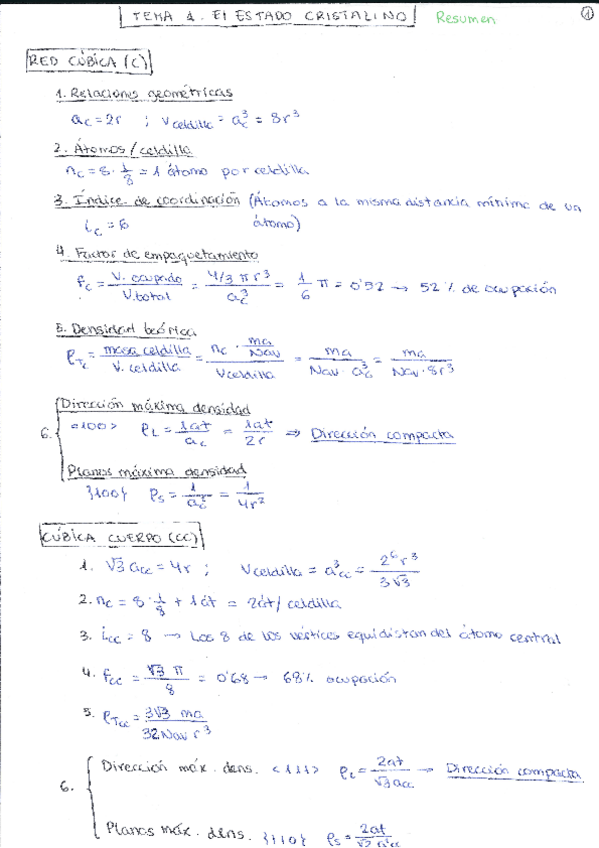 TEMA 1. El ESTADO CRISTALINO Resumen 1
RED CÚBICA (C)
1. Relaciones geométricas
a_c = 2r ; V celdilla = a_c^3 = 8r^3
2. Átomos/celdilla
n_c = 8 · 1/8 = 1 átomo por celdilla
3. Índice de coordinación (Átomos a la misma distancia mínima de un
i_c = 6 átomo)
4. Factor de empaquetamiento
f_c = V. ocupado / V. total = 4/3 π r^3 / a_c^3 = 1/6 π = 0'52 → 52% de ocupación
5. Densidad teórica
ρ_Tc = masa celdilla / V. celdilla = n_c · ma/Nav / V celdilla = ma / Nav · a_c^3 = ma / Nav · 8r^3
Dirección máxima densidad
6. <100> ρ_L = 1at / a_c = 1at / 2r ⇒ Dirección compacta
Planos máxima densidad
{100} ρ_s = 1 / a_c^2 = 1 / 4r^2
CÚBICA CUERPO (CC)
1. √3 a_cc = 4r ; V celdilla = a_cc^3 = 2^6 r^3 / 3√3
2. n_c = 8 · 1/8 + 1 át = 2át/celdilla
3. i_cc = 8 → Los 8 de los vértices equidistan del átomo central
4. f_cc = √3 π / 8 = 0'68 → 68% ocupación
5. ρ_Tcc = 3√3 ma / 32 Nav r^3
6. Dirección máx. dens. <111> ρ_L = 2at / √3 a_cc → Dirección compacta
Planos máx. dens. {110} ρ_s = 2at / √2 a_cc^2